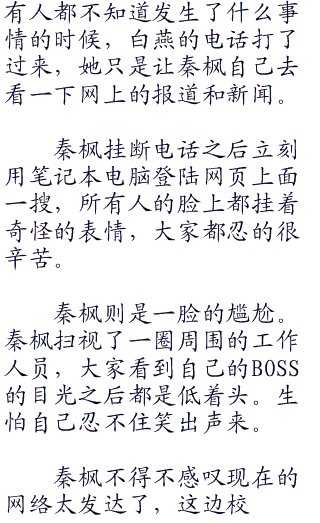 有人都不知道发生了什么事
情的时候，白燕的电话打了
过来，她只是让秦枫自己去
看一下网上的报道和新闻。
秦枫挂断电话之后立刻
用笔记本电脑登陆网页上面
一搜，所有人的脸上都挂着
奇怪的表情，大家都忍的很
辛苦。
秦枫则是一脸的尴尬。
秦枫扫视了一圈周围的工作
人员，大家看到自己的BOSS
的目光之后都是低着头。生
怕自己忍不住笑出声来。
秦枫不得不感叹现在的
网络太发达了，这边校